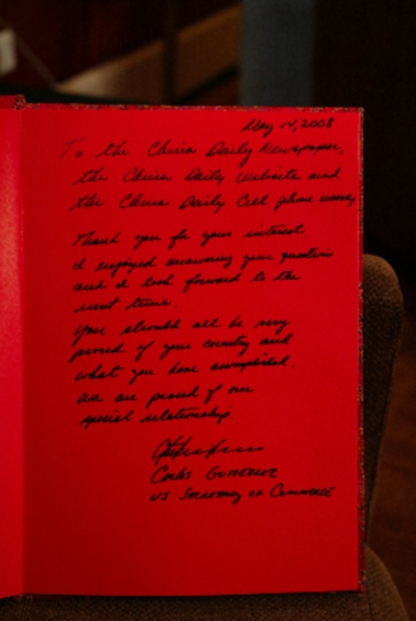 May 14, 2008
To the China Daily Newspaper,
the China Daily Website and
the China Daily Cell phone
Thank you for your interest
I enjoyed answering your question
and I look forward to the
next time.
You should all be very
proud of your country and
what you have accomplished.
We are proud of our
special relationship.
Carlos Gutierrez
US Secretary of Commerce